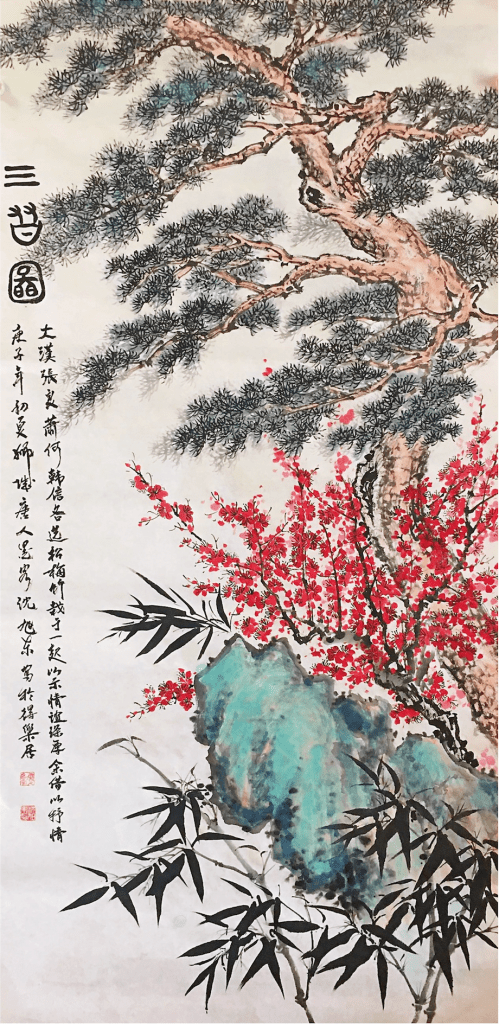 三友圖
大漢張良蕭何韩信各选松梅竹栽于一起以示情谊深厚余借以抒情
庚子年初夏柳城唐人墨客沈旭东写於得樂居